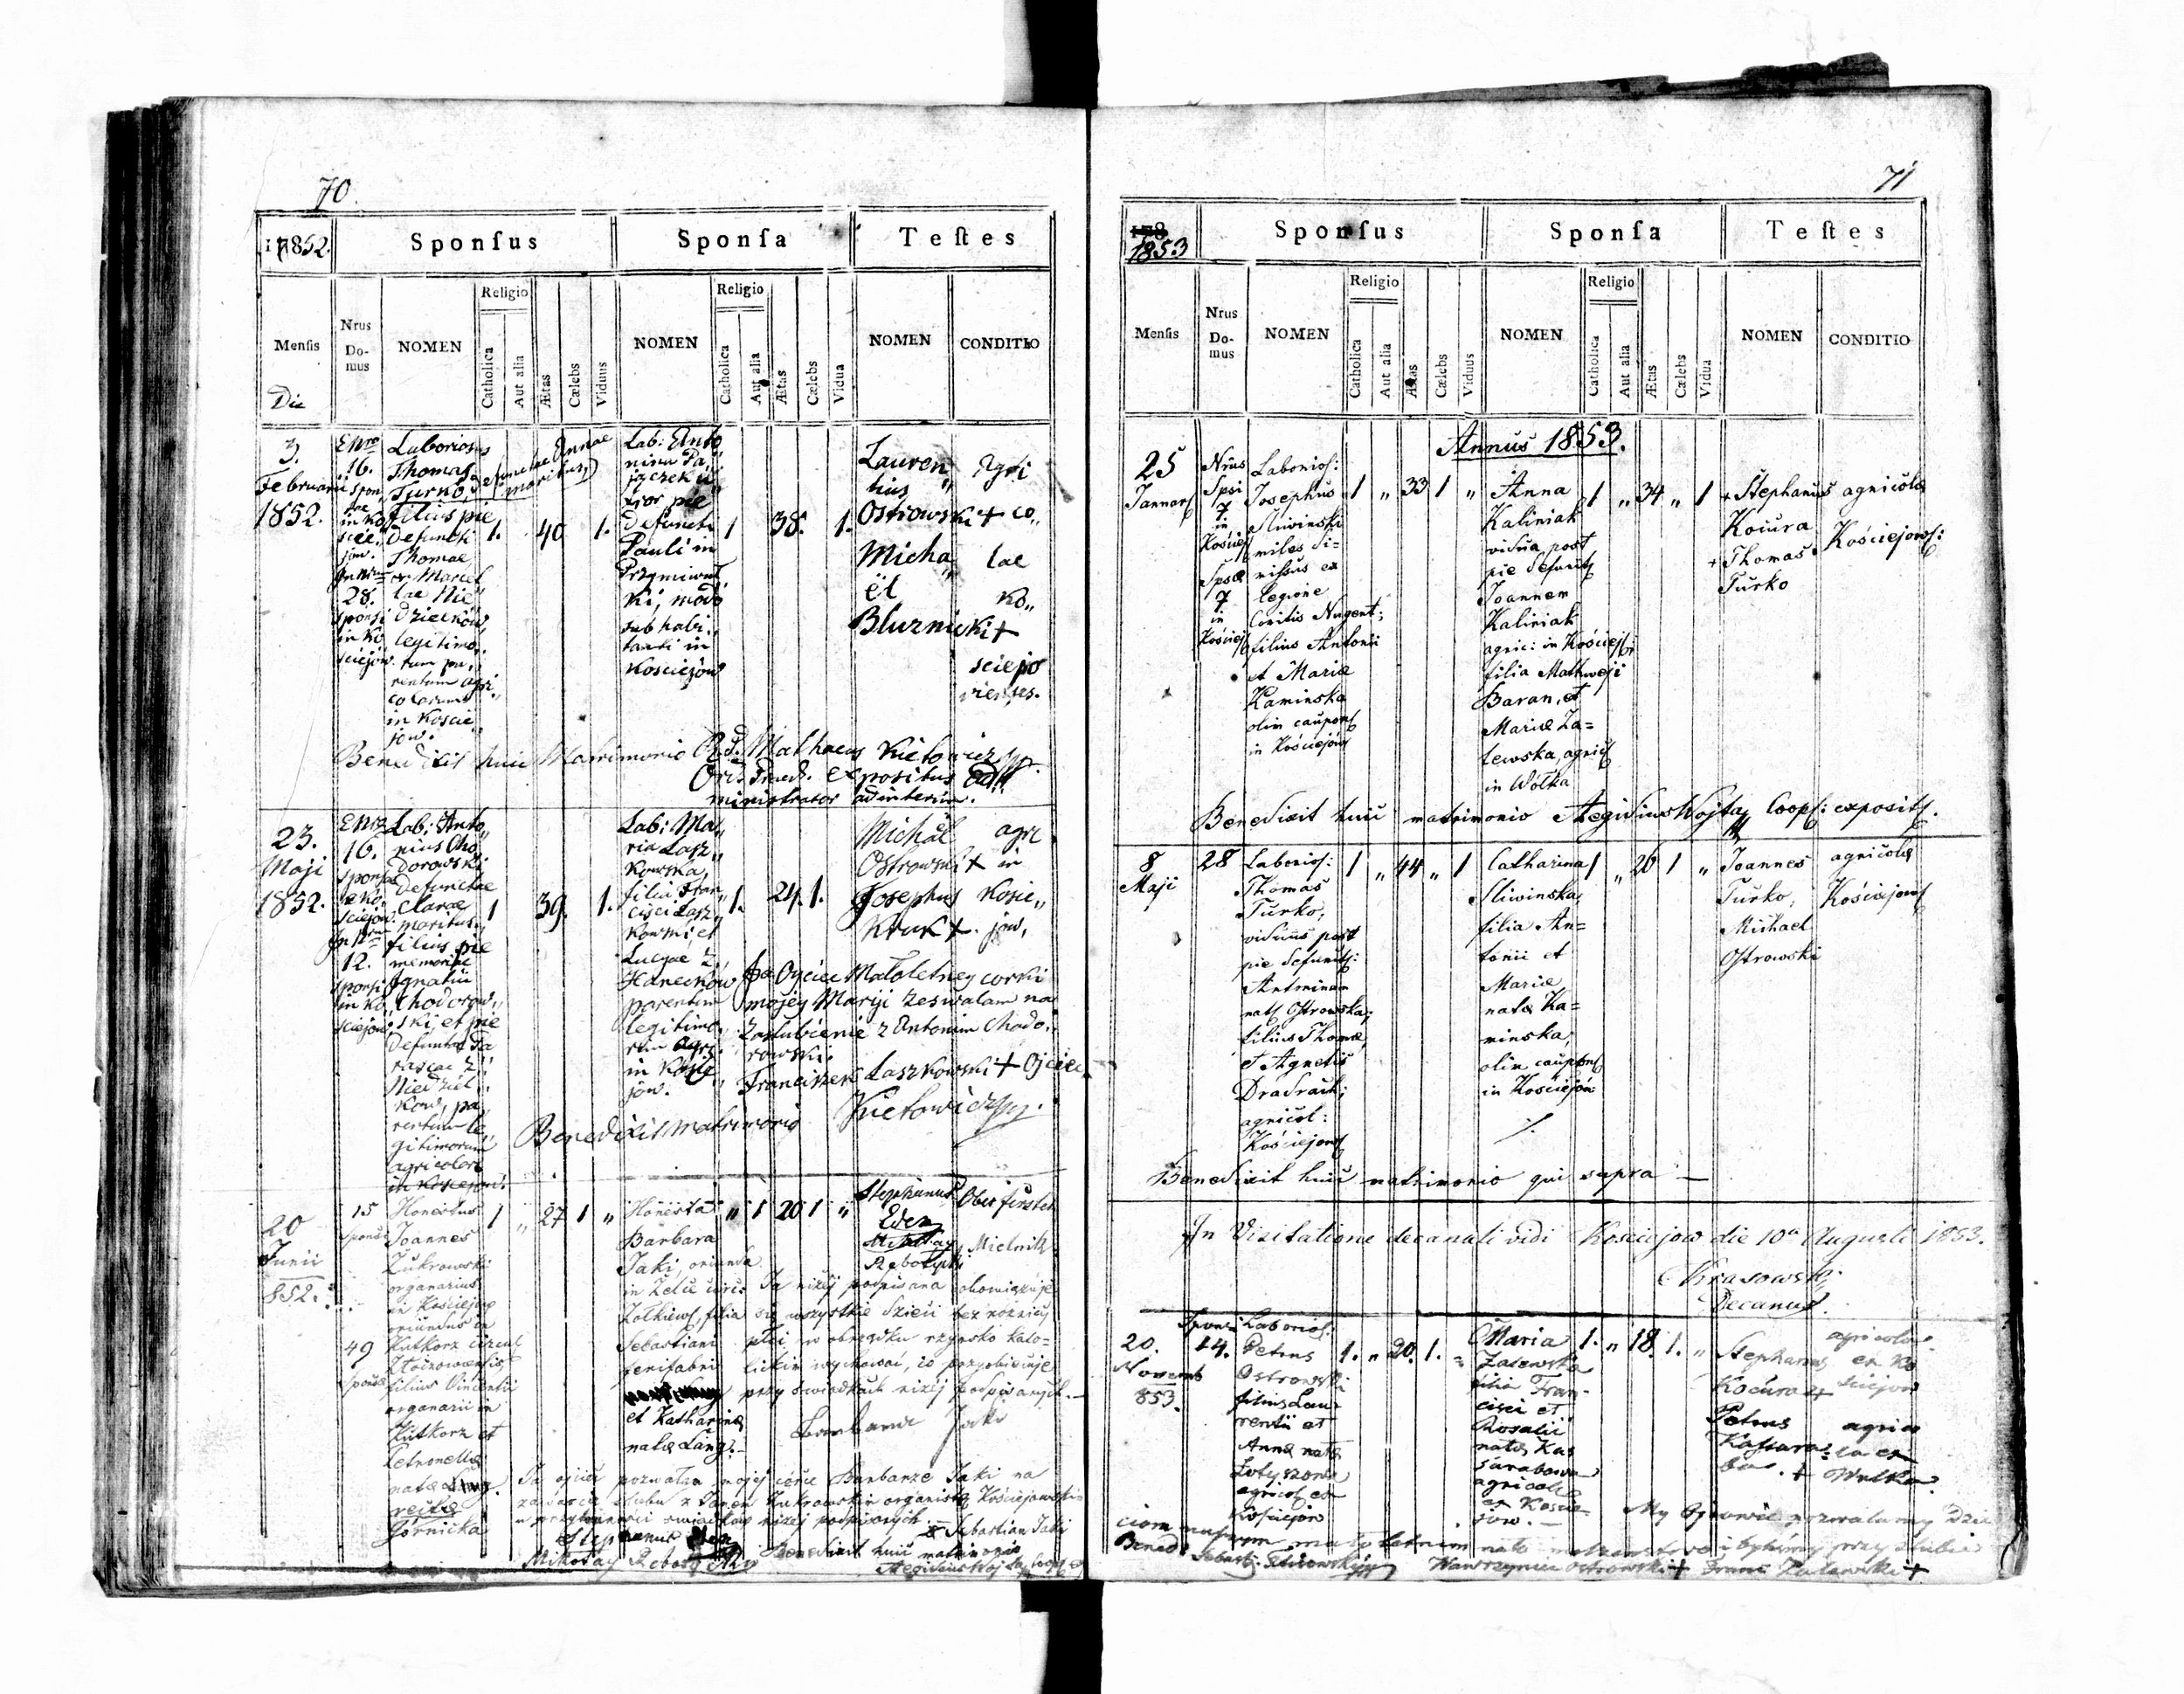 70.
17852.
Sponſus
Sponſa
Teſtes
Menſis
Die
Nrus
Do-
mus
NOMEN
Religio
Catholica
Aut alia
Ætas
Cælebs
Viduus
NOMEN
Religio
Catholica
Aut alia
Ætas
Cælebs
Vidua
NOMEN
CONDITIO
3.
Februarii
1852.
E Nro
16.
Spon
sae
in Ko
scie
jów.
In Nrum
28.
sponsi
in Ko
sciejów.
Laboriosus
Thomas
Turko, defunctae Annae
maritus,
filius pie
defuncti
Thomae
Niedzielków
legitimo
rum pa
rentum agri
colarum
in Koscie
jow.
1.
40
1.
Lab: Anto
nina Pa
jączek u
xor pie
defuncti
Pauli in
modo
sub habi
tanti in
Kosciejów
1
38.
1.
Lauren
tius
Ostrowski +
Micha
ël
Bluznicki +
Agri
co
lae
Ko
sciejo
vienses.
Benedixit huic Matrimonio Rd. Mathaeus Kietowicz mp.
Ord. Praed. Expositus Ad
ministrator ad interim.
23.
Maji
1852.
E Nro
16.
sponsae
e Ko
sciejow.
In Nrum
12.
sponsi
in Ko
sciejow.
Lab: Anto
nius Cho
dorowski
defunctae
Clarae
maritus
filius pie
memoriae
Ignatii
Chodorow
ski, et pie
defunctae Pa
rascae z
Niedziel
ków, pa
rentum le
gitimorum
agricolar
in Kosciejow.
1
39.
1.
Lab: Ma
ria Lasz
kowska,
filia Fran
cisci Lasz
kowski, et
Lucyae z
Hanecków
parentum
legitimo
rum agr.
in Koscie
jów.
1.
24.
1.
Michaël
Ostrowski +
Josephus
Kruk +
agri
in
Koscie
jów.
Ja Oyciec Małoletney corki
mojéy Maryi zezwalam na
zaslubienie z Antonim Chodo
rowski.
Franciszek Laszkowski + Ojciec
Benedixit matrimonio Kietowicz mp.
20
Junii
852.
15
sponsi
49
sponsae
Honestus
Joannes
Zukrowski
organarius
in Kosciejow
oriundus in
Kutkorz circul
Złoczowensis
filius Vincentii
organarii in
Kutkorz et
Petronellae
natae Lang.
recte
Górnicka
1
„
27
1
„
Honesta
Barbara
Jaki, oriunda
in Żelce circ:
Zołkiew, filia
Sebastiani
ferrifabri
et Katharina
nata Lang.
„
1
20
1
„
Stephanus
Eder
Mikołay
Rebo
Ober förster
Mielnik
Ja niżéj podpisana obowiązuje
się wszystkie dzieci bez różnicy
płci w obrządku rzymsko kato=
lickim wychować, co przyobiecuje
przy świadkach niżéj podpisanych.—
Barbara Jaki
Ja ojciec pozwalam mojéj córce Barbarze Jaki na
zawarcie ślubu z Janem Zukrowskim organistą Kościejowskim
w przytomności świadków niżej podpisanych.—
Sebastian Jaki
Stephanus Eder
Mikołay
Benedixit huic matrimonio
Aegidius Wojtas Coop. e
71
178
1853
Sponſus
Sponſa
Teſtes
Menſis
Nrus
Do-
mus
NOMEN
Religio
Catholica
Aut alia
Ætas
Cælebs
Viduus
NOMEN
Religio
Catholica
Aut alia
Ætas
Cælebs
Vidua
NOMEN
CONDITIO
Annus 1853.
25
Januar
Nrus
Spsi
7
in
Kościej
Spsæ
7
in
Kościej
Laborios:
Josephus
Sliwinski
miles di=
missus ex
legione
Comitis Nugent;
filius Antonii
et Mariæ
Kaminska
olim caupon
in Kościejów
1
„
33
1
„
Anna
Kaliniak
vidua post
pie defunct
Joannem
Kaliniak
agric: in Kościej
filia Mathæi
Baran, et
Mariæ Za=
lewska, agric
in Wólka
1
„
34
„
1
+ Stephanus
Kocura
+ Thomas
Turko
agricolæ
Kościejow:
Benedixit huic matrimonio Aegidius Wojtas Coop: exposit.
8
Maji
28
Laborios:
Thomas
Turko,
viduus post
pie defunct:
Antoninam
nat Ostrowska;
filius Thomæ,
et Agnetis
Dradrach;
agricol:
Kościejow
1
„
44
„
1
Catharina
Sliwinska,
filia An=
tonii et
Mariæ
natæ Ka=
minska,
olim caupon
in Kościejów
1
„
26
1
„
Joannes
Turko,
Michael
Ostrowski
agricolæ
Kościejow
Benedixit huic matrimonio qui supra —
In Visitatione decanali vidi Kosciejow die 10a Augusti 1853.
Krasowski
Decanus.
20.
Novemb
853.
Sponsi
14.
Laborios:
Petrus
Ostrowski
filius Lau
rentii et
Anna nata
agricol ex
Kosciejow
1.
„
20.
1.
„
Maria
Zalewska
filia Fran-
cisci et
Rosalii
nata Kas
agricola
ex Koscie
jow.—
1.
„
18.
1.
„
Stephanus
Kocura +
Petrus
agricola
ex Ko
sciejow
agrico
la ex
Wulka
My Ojcowie pozwalamy dzie
ciom naszym małoletnim
i byliśmy przy ślubie
Bened.
Wawrzyniec Ostrowski + Franc Zalewski +